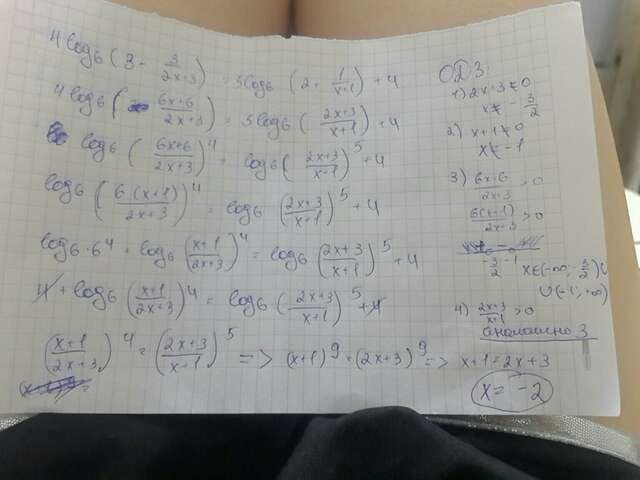 4log₆(3 - 3/(2x+3)) = 5log₆(2 + 1/(x+1)) + 4
4log₆((6x+6)/(2x+3)) = 5log₆((2x+3)/(x+1)) + 4
log₆((6x+6)/(2x+3))⁴ = log₆((2x+3)/(x+1))⁵ + 4
log₆(6(x+1)/(2x+3))⁴ = log₆((2x+3)/(x+1))⁵ + 4
log₆ 6⁴ + log₆((x+1)/(2x+3))⁴ = log₆((2x+3)/(x+1))⁵ + 4
4 + log₆((x+1)/(2x+3))⁴ = log₆((2x+3)/(x+1))⁵ + 4
((x+1)/(2x+3))⁴ = ((2x+3)/(x+1))⁵ => (x+1)⁹ = (2x+3)⁹ => x+1 = 2x+3
x = -2
ОДЗ:
1) 2x+3 ≠ 0
x ≠ -3/2
2) x+1 ≠ 0
x ≠ -1
3) (6x+6)/(2x+3) > 0
6(x+1)/(2x+3) > 0
-3/2 -1
x∈(-∞; -3/2)∪
∪(-1; +∞)
4) (2x+3)/(x+1) > 0
аналогично 3